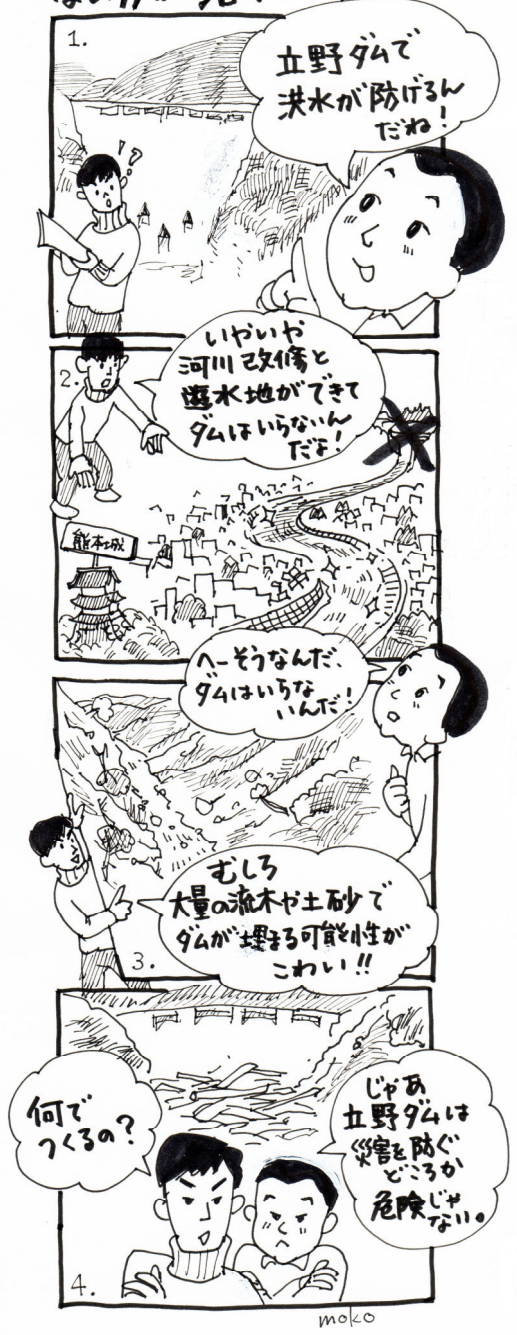 1.
立野ダムで
洪水が防げるん
だね!
!?
2.
いやいや
河川改修と
遊水地ができて
ダムはいらないん
だよ!
熊本城
へーそうなんだ、
ダムはいらな
いんだ!
むしろ
大量の流木や土砂で
ダムが埋まる可能性が
こわい!!
3.
何で
つくるの?
じゃあ
立野ダムは
災害を防ぐ
どころか
危険じゃ
ない。
4.
moko